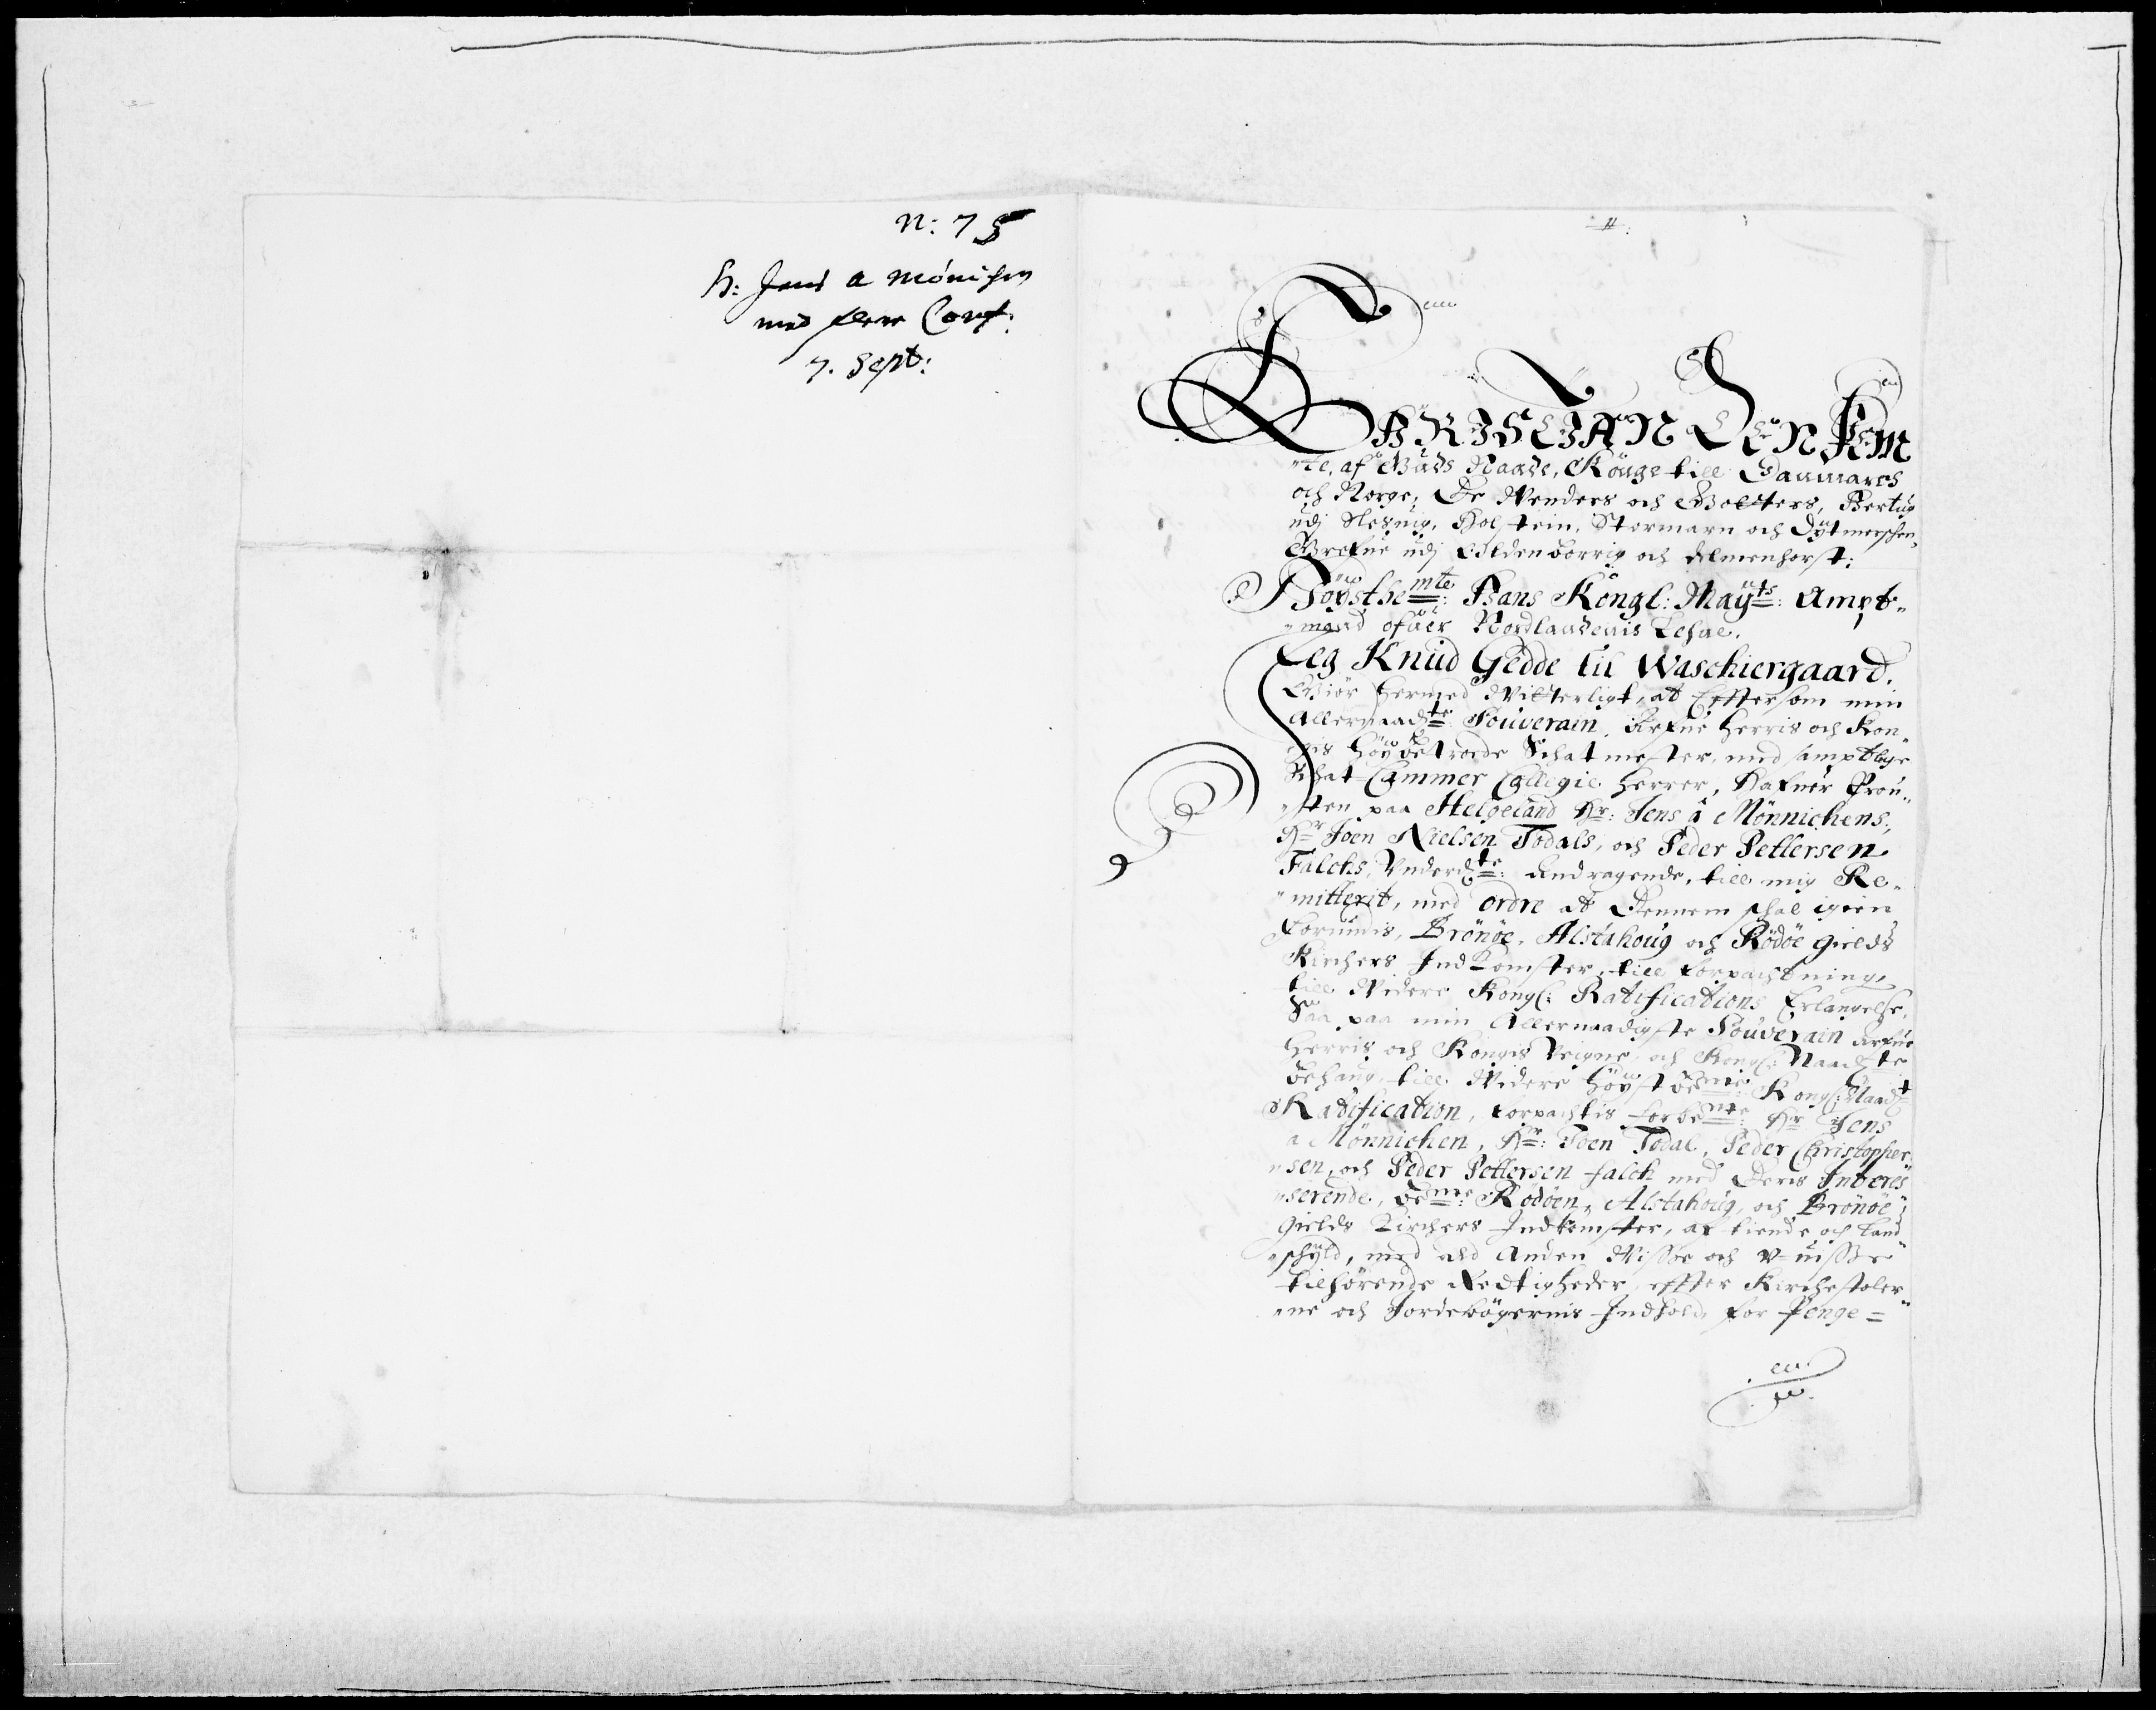 N: 75
H: Jens a Mönichen
med flere Conf:
7. Sept:
CHRISTIAN DEN FEM
"te, af Guds Naade, Konge till Danmarch
och Norge, De Wenders och Gotters, Hertug
udj Slesuig, Holstein, Stormarn och Dytmerschen,
Grefue udj Oldenborrig och delmenhorst;
Höystbemte: Hans Kongl: Mayts: Ampt-
"mand ofuer Nordlandenis Lehne.
Jeg Knud Gedde til Waschiergaard.
Giör hermed Witterligt, at Efftersom min
Allernaadte Souverain Arfue Herris och Kon-
"gis Höybetroede Schatmester, med samptlige
Schat-Cammer Collegie Herrer, Hafuer Prou-
"sten paa Helgeland Hr: Jens à Mönnichens,
Hr Joen Nielsen Todals, och Peder Pettersen
Falchs, Underdte: Andragende, till mig Re-
"mitterit, med ordre at Dennem schal igien
Forundis, Brönöe, Alstahoug och Rödöe gields
Kirchers Indkomster, till forpachtning,
till Widere Kongl: Ratifications Erlangelse,
Saa paa min Allernaadigste Souverain Arfue
Herris och Kongis Veigne, och Kongl: Naadste
behaug, till Widere Höystbemte: Kongl: Naadt
Ratification, forpachtis forbemte: Hr Jens
a Mönnichen, Hr: Joen Todal, Peder Christopher
"sen, och Peder Pettersen falch med Deris Interes
"serende, bemte: Rödöen, Alstahoug, och Brönöe
gields Kirchers Indkomster, af tiende och Land
"schyld, med ald Anden Wisse och U-uisse
tilhörende Rettigheder, effter Kirchestoler
"ne och Jordebögernis Indhold, for Penge=